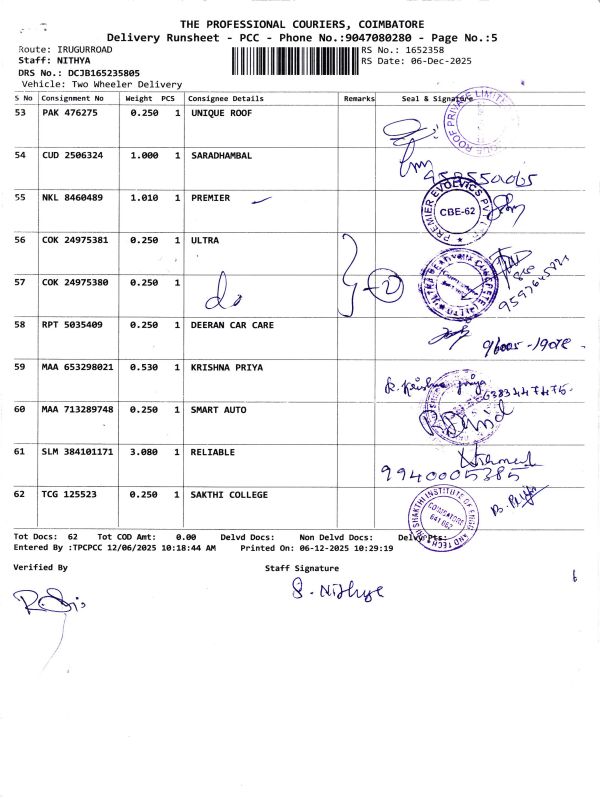 THE PROFESSIONAL COURIERS, COIMBATORE
Delivery Runsheet - PCC - Phone No.:9047080280 - Page No.:5
Route: IRUGURROAD RS No.: 1652358
Staff: NITHYA RS Date: 06-Dec-2025
DRS No.: DCJB165235805
Vehicle: Two Wheeler Delivery
S No Consignment No Weight PCS Consignee Details Remarks Seal & Signature
53 PAK 476275 0.250 1 UNIQUE ROOF
54 CUD 2506324 1.000 1 SARADHAMBAL
55 NKL 8460489 1.010 1 PREMIER
PREMIER EVOLVICS PVT
CBE-62
56 COK 24975381 0.250 1 ULTRA
57 COK 24975380 0.250 1 do 2
58 RPT 5035409 0.250 1 DEERAN CAR CARE
59 MAA 653298021 0.530 1 KRISHNA PRIYA
K. Krishna Priya
60 MAA 713289748 0.250 1 SMART AUTO
61 SLM 384101171 3.080 1 RELIABLE
9940005385
62 TCG 125523 0.250 1 SAKTHI COLLEGE
COIMBATORE
641 062
Tot Docs: 62 Tot COD Amt: 0.00 Delvd Docs: Non Delvd Docs: Delvy Pts:
Entered By :TPCPCC 12/06/2025 10:18:44 AM Printed On: 06-12-2025 10:29:19
Verified By Staff Signature
S. Nithya
6